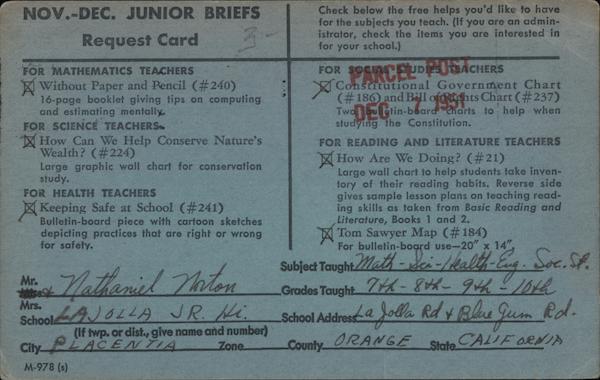 NOV.-DEC. JUNIOR BRIEFS
Request Card
3-
Check below the free helps you'd like to have
for the subjects you teach. (If you are an admin-
istrator, check the items you are interested in
for your school.)
FOR MATHEMATICS TEACHERS
☒ Without Paper and Pencil (#240)
16-page booklet giving tips on computing
and estimating mentally.
FOR SCIENCE TEACHERS
☒ How Can We Help Conserve Nature's
Wealth? (#224)
Large graphic wall chart for conservation
study.
FOR HEALTH TEACHERS
☒ Keeping Safe at School (#241)
Bulletin-board piece with cartoon sketches
depicting practices that are right or wrong
for safety.
FOR SOCIAL STUDIES TEACHERS
☒ Constitutional Government Chart
(#186) and Bill of Rights Chart (#237)
Two bulletin-board charts to help when
studying the Constitution.
PARCEL POST
DEC 7 1951
FOR READING AND LITERATURE TEACHERS
☒ How Are We Doing? (#21)
Large wall chart to help students take inven-
tory of their reading habits. Reverse side
gives sample lesson plans on teaching read-
ing skills as taken from Basic Reading and
Literature, Books 1 and 2.
☒ Tom Sawyer Map (#184)
For bulletin-board use—20" x 14".
Subject Taught Math - Sci - Health - Eng. Soc. St.
Mr.
Miss Nathaniel Norton Grades Taught 7th - 8th - 9th - 10th
Mrs.
School LA JOLLA JR. Hi. School Address La Jolla Rd & Blue Gum Rd.
(If twp. or dist., give name and number)
City PLACENTIA Zone County ORANGE State CALIFORNIA
M-978 (s)